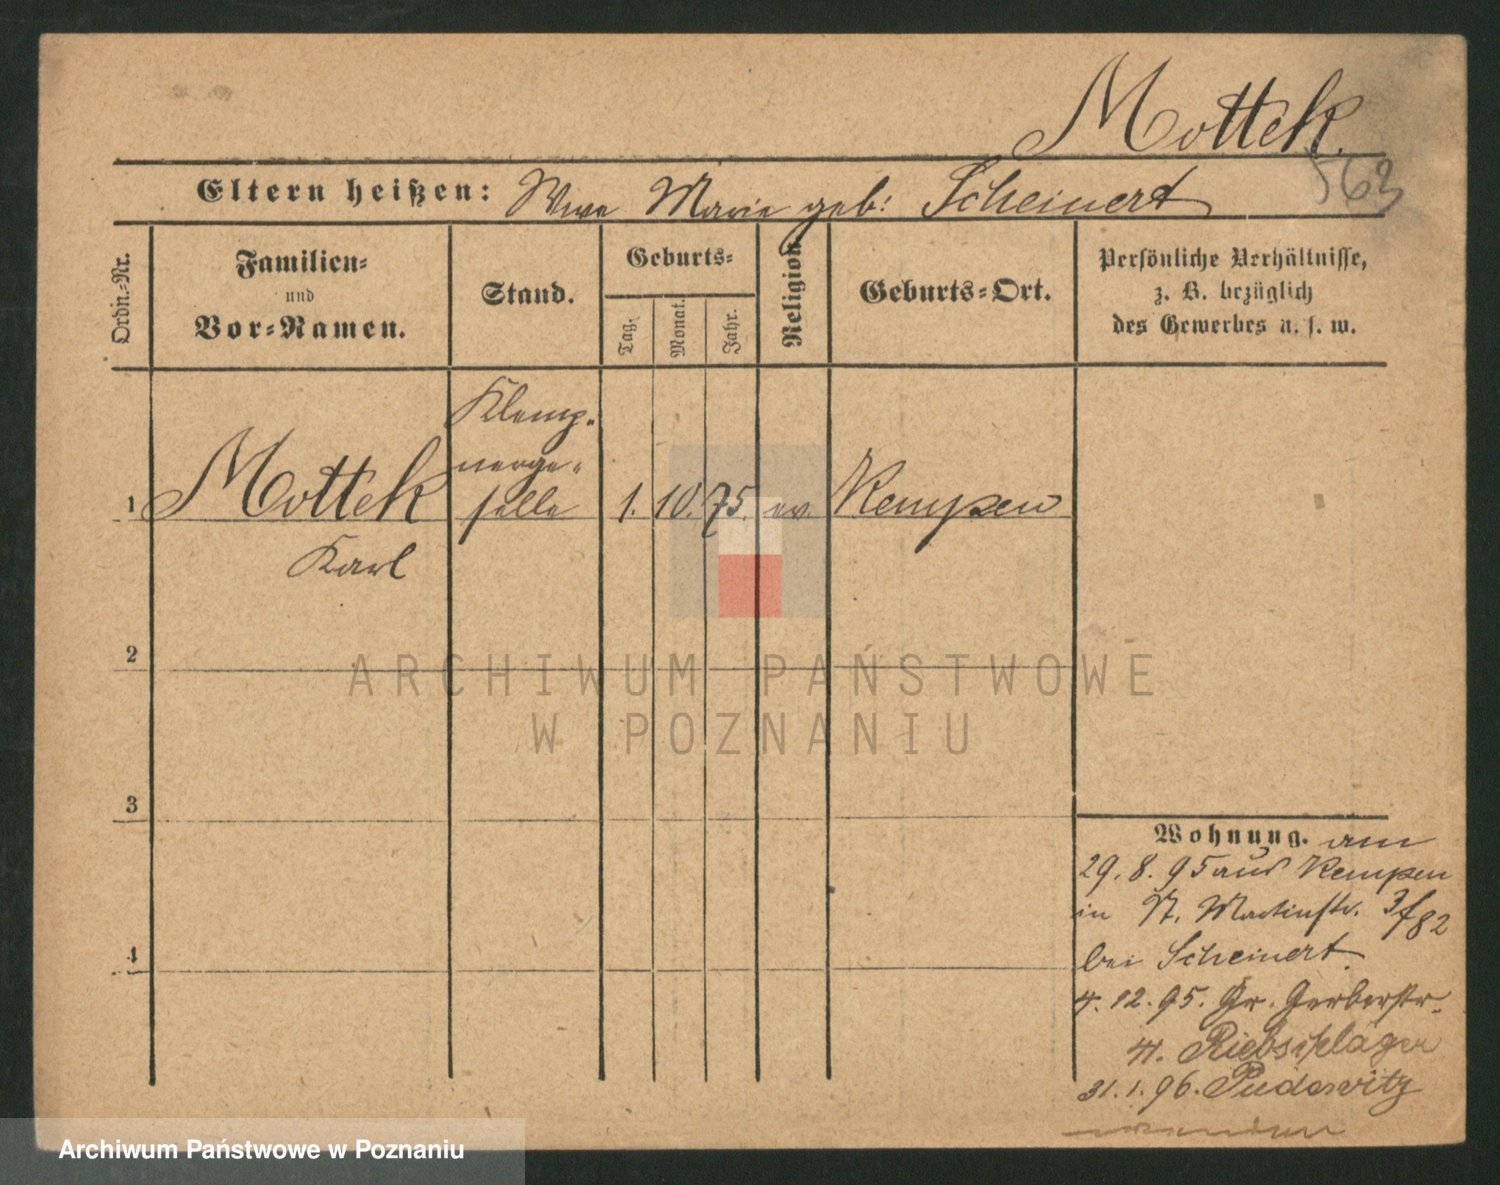 Mottek.
563
Eltern heißen: Wwe Marie geb: Scheinert
Ordn.-Nr.
Familien-
und
Vor-Namen.
Stand.
Geburts-
Tag.
Monat.
Jahr.
Religion.
Geburts-Ort.
Persönliche Verhältnisse,
z. B. bezüglich
des Gewerbes u. s. w.
Klemp-
nerge-
1 Mottek selle 1. 10. 75. ev. Kempen
Karl
2
ARCHIWUM PAŃSTWOWE
W POZNANIU
3
Wohnung. am
29. 8. 95 aus Kempen
in St. Martinstr. 82
4
bei Scheinert.
4. 12. 95. Gr. Gerberstr.
41. Riebschläger
31. 1. 96. Pudewitz
Archiwum Państwowe w Poznaniu